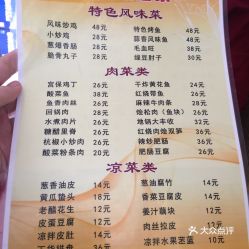 特色风味菜
风味炒鸡 48元 特色烤鱼 48元
小炒鸡 28元 蒜香风味鱼 48元
葱爆香肠 28元 毛血旺 38元
脆骨丸子 28元 绿豆肘子 30元
肉菜类
宫保鸡丁 26元 干炸黄花鱼 26元
酸菜鱼 38元 红烧带鱼 26元
鱼香肉丝 26元 麻辣牛肉条 28元
回锅肉 28元 烩松肉(鱼块) 26元
水煮肉片 26元 地锅大丰收 32元
糖醋里脊 26元 红烧肉烩双笋 36元
杭椒小炒肉 26元 辣炒肥肠 36元
酸菜粉条肉 20元 肥肠豆腐 26元
凉菜类
葱香油皮 14元 葱油腐竹 14元
黄瓜蛰头 18元 香菜豆腐皮 14元
老醋花生 12元 姜汁藕块 12元
皮蛋豆腐 12元 肉丝拉皮 12元
凉拌皮肚 14元 凉拌水果苤蓝 12元
大众点评